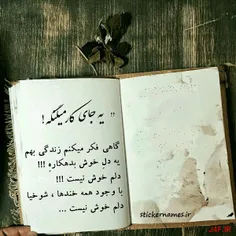 " یه جای کار میلنگه !
گاهی فکر میکنم زندگی بهم
یه دل خوش بدهکاره !!!
دلم خوش نیست !!!
با وجود همه خندها ، شوخیا
دلم خوش نیست ...
stickernames.ir
J4F.IR